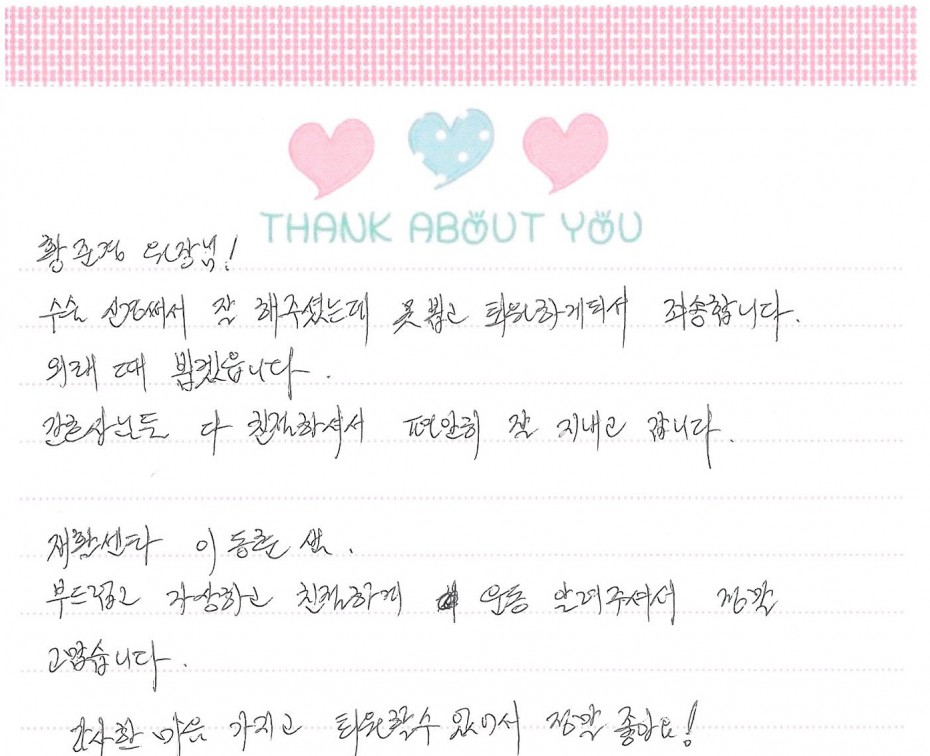 THANK ABOUT YOU
황준경 원장님!
수술 신경써서 잘 해주셨는데 못뵙고 퇴원하게되서 죄송합니다.
외래 때 뵙겠읍니다.
간호사님들 다 친절하셔서 편안히 잘 지내고 갑니다.
재활센타 이동준 쌤.
부드럽고 자상하고 친절하게 운동 알려주셔서 정말
고맙습니다.
감사한 마음 가지고 퇴원할수 있어서 정말 좋아요!